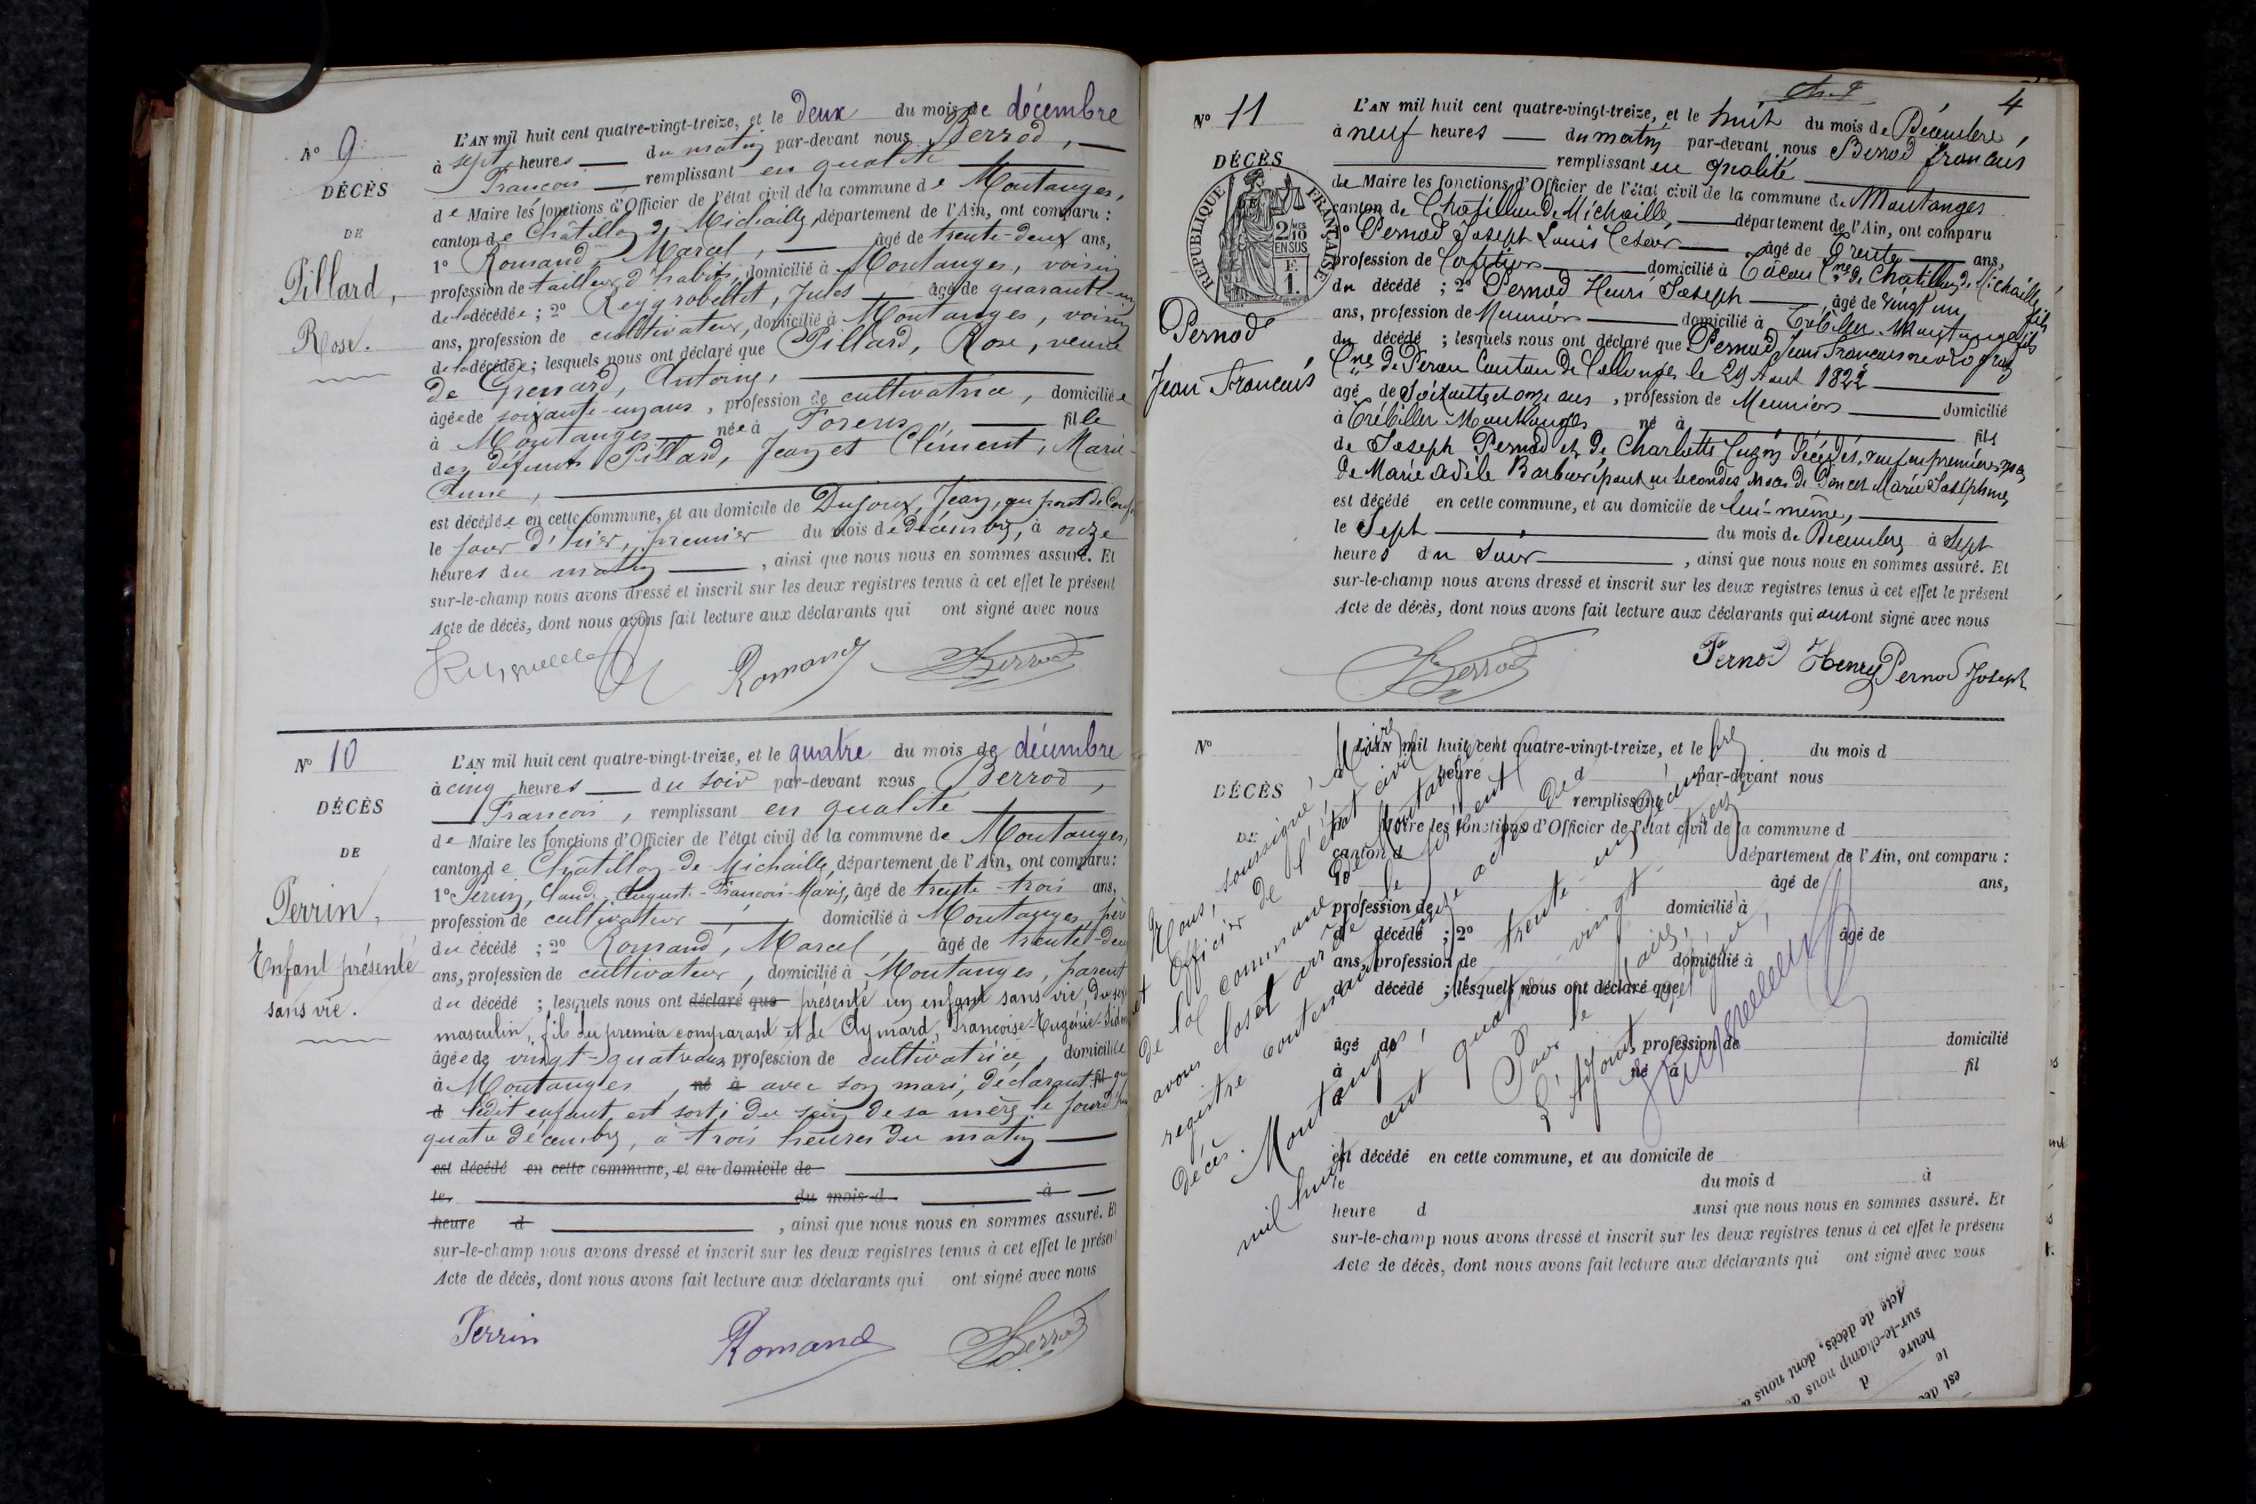 N° 9
DÉCÈS
DE
Pillard,
Rose.
L'AN mil huit cent quatre-vingt-treize, et le deux du mois de décembre
à sept heures du matin par-devant nous Berrod,
François remplissant en qualité
de Maire les fonctions d'Officier de l'état civil de la commune de Montanges,
canton de Châtillon de Michaille, département de l'Ain, ont comparu :
1° Romand, Marcel, âgé de trente-deux ans,
profession de tailleur d'habits, domicilié à Montanges, voisin
de la décédée ; 2° Reygrobellet, Jules âgé de quarante-un
ans, profession de cultivateur, domicilié à Montanges, voisin
de la décédée ; lesquels nous ont déclaré que Pillard, Rose, veuve
de Grenard, Antoine,
âgée de soixante-un ans, profession de cultivatrice, domiciliée
à Montanges née à Forens, fille
des défunts Pillard, Jean et Clément, Marie-
Anne,
est décédée en cette commune, et au domicile de Dujoux, Jean, au pont de
le jour d'hier, premier du mois de décembre, à onze
heures du matin, ainsi que nous nous en sommes assuré. Et
sur-le-champ nous avons dressé et inscrit sur les deux registres tenus à cet effet le présent
Acte de décès, dont nous avons fait lecture aux déclarants qui ont signé avec nous
Romand Berrod
N° 10
DÉCÈS
DE
Perrin,
Enfant présenté
sans vie.
L'AN mil huit cent quatre-vingt-treize, et le quatre du mois de décembre
à cinq heures du soir par-devant nous Berrod,
François, remplissant en qualité
de Maire les fonctions d'Officier de l'état civil de la commune de Montanges,
canton de Châtillon de Michaille, département de l'Ain, ont comparu :
1° Perrin, Claude-August-François-Marie, âgé de trente-trois ans,
profession de cultivateur, domicilié à Montanges, père
du décédé ; 2° Romand, Marcel, âgé de trente-deux
ans, profession de cultivateur, domicilié à Montanges, parent
du décédé ; lesquels nous ont déclaré que présenté un enfant sans vie, du sexe
masculin, fils du premier comparant et de Aymard, Françoise-Eugénie
âgée de vingt-quatre ans profession de cultivatrice, domiciliée
à Montanges, né à avec son mari, déclarant fil que
d ledit enfant est sorti du sein de sa mère le jourd'hui
quatre décembre, à trois heures du matin
est décédé en cette commune, et au domicile de
le du mois d à
heure d, ainsi que nous nous en sommes assuré. Et
sur-le-champ nous avons dressé et inscrit sur les deux registres tenus à cet effet le présent
Acte de décès, dont nous avons fait lecture aux déclarants qui ont signé avec nous
Perrin Romand Berrod
4
N° 11
DÉCÈS
RÉPUBLIQUE FRANÇAISE
2/10 EN SUS
F.
1.
Pernod
Jean Francois
L'AN mil huit cent quatre-vingt-treize, et le huit du mois de Décembre,
à neuf heures du matin par-devant nous Berrod francois
remplissant en qualité
de Maire les fonctions d'Officier de l'état civil de la commune de Montanges
canton de Chatillon de Michaille, département de l'Ain, ont comparu
1° Pernod Joseph Louis César âgé de Trente ans,
profession de domicilié à Tacon Cne de Chatillon de Michaille fils
du décédé ; 2° Pernod Henri Joseph âgé de vingt un
ans, profession de Meunier domicilié à Trébillet Montanges fils
du décédé ; lesquels nous ont déclaré que Pernod Jean Francois né a Logras
Cne de Peron Canton de Collonges le 29 Aout 1822
agé de Soixante et onze ans, profession de Meunier domicilié
à Trébillet Montanges né à fils
de Joseph Pernod et de Charlotte Décédés, veuf en premières noces
de Marie Adèle Barbier époux en secondes noces de Poncet Marie Joséphine,
est décédé en cette commune, et au domicile de lui-même,
le Sept du mois de Decembre à Sept
heures du Soir, ainsi que nous nous en sommes assuré. Et
sur-le-champ nous avons dressé et inscrit sur les deux registres tenus à cet effet le présent
Acte de décès, dont nous avons fait lecture aux déclarants qui ont ont signé avec nous
Berrod Pernod Henry Pernod Joseph
N°
DÉCÈS
DE
L'AN mil huit cent quatre-vingt-treize, et le du mois d
à heure d par-devant nous
remplissant
Maire les fonctions d'Officier de l'état civil de la commune d
canton d département de l'Ain, ont comparu :
1° âgé de ans,
profession de domicilié à
d décédé ; 2° âgé de
ans, profession de domicilié à
d décédé ; lesquels nous ont déclaré que
âgé de, profession de domicilié
à né à fil
d
est décédé en cette commune, et au domicile de
le du mois d à
heure d ainsi que nous nous en sommes assuré. Et
sur-le-champ nous avons dressé et inscrit sur les deux registres tenus à cet effet le présent
Acte de décès, dont nous avons fait lecture aux déclarants qui ont signé avec nous
Nous, soussigné, Maire
et Officier de l'état civil
de la commune de Montanges
avons clos et arrêté le présent
registre contenant onze actes de
décès.
Montanges, trente-un décembre
mil huit cent quatre-vingt-treize
Pour le Maire,
L'Adjoint délégué,
est déc
le
heure d
sur-le-champ nous a
Acte de décès, dont nous a